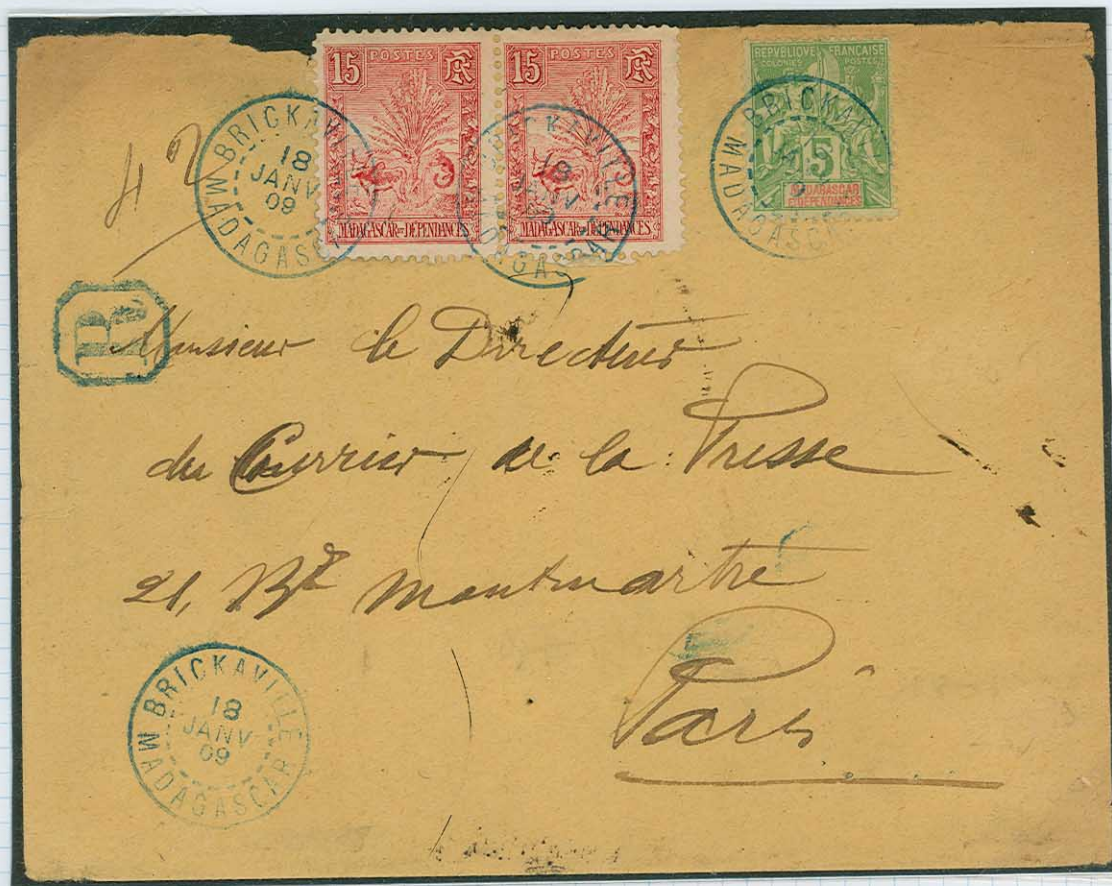 15 POSTES RF
MADAGASCAR ET DÉPENDANCES
15 POSTES RF
MADAGASCAR ET DÉPENDANCES
REPUBLIQUE FRANÇAISE
COLONIES POSTES
5
MADAGASCAR
ET DÉPENDANCES
BRICKAVILLE
18
JANV
09
MADAGASCAR
KAVILLE
18
JANV
MADAGASCAR
BRICKAV
MADAGASCAR
R
Monsieur le Directeur
du Courrier de la Presse
21, Bd Montmartre
Paris
BRICKAVILLE
18
JANV
09
MADAGASCAR